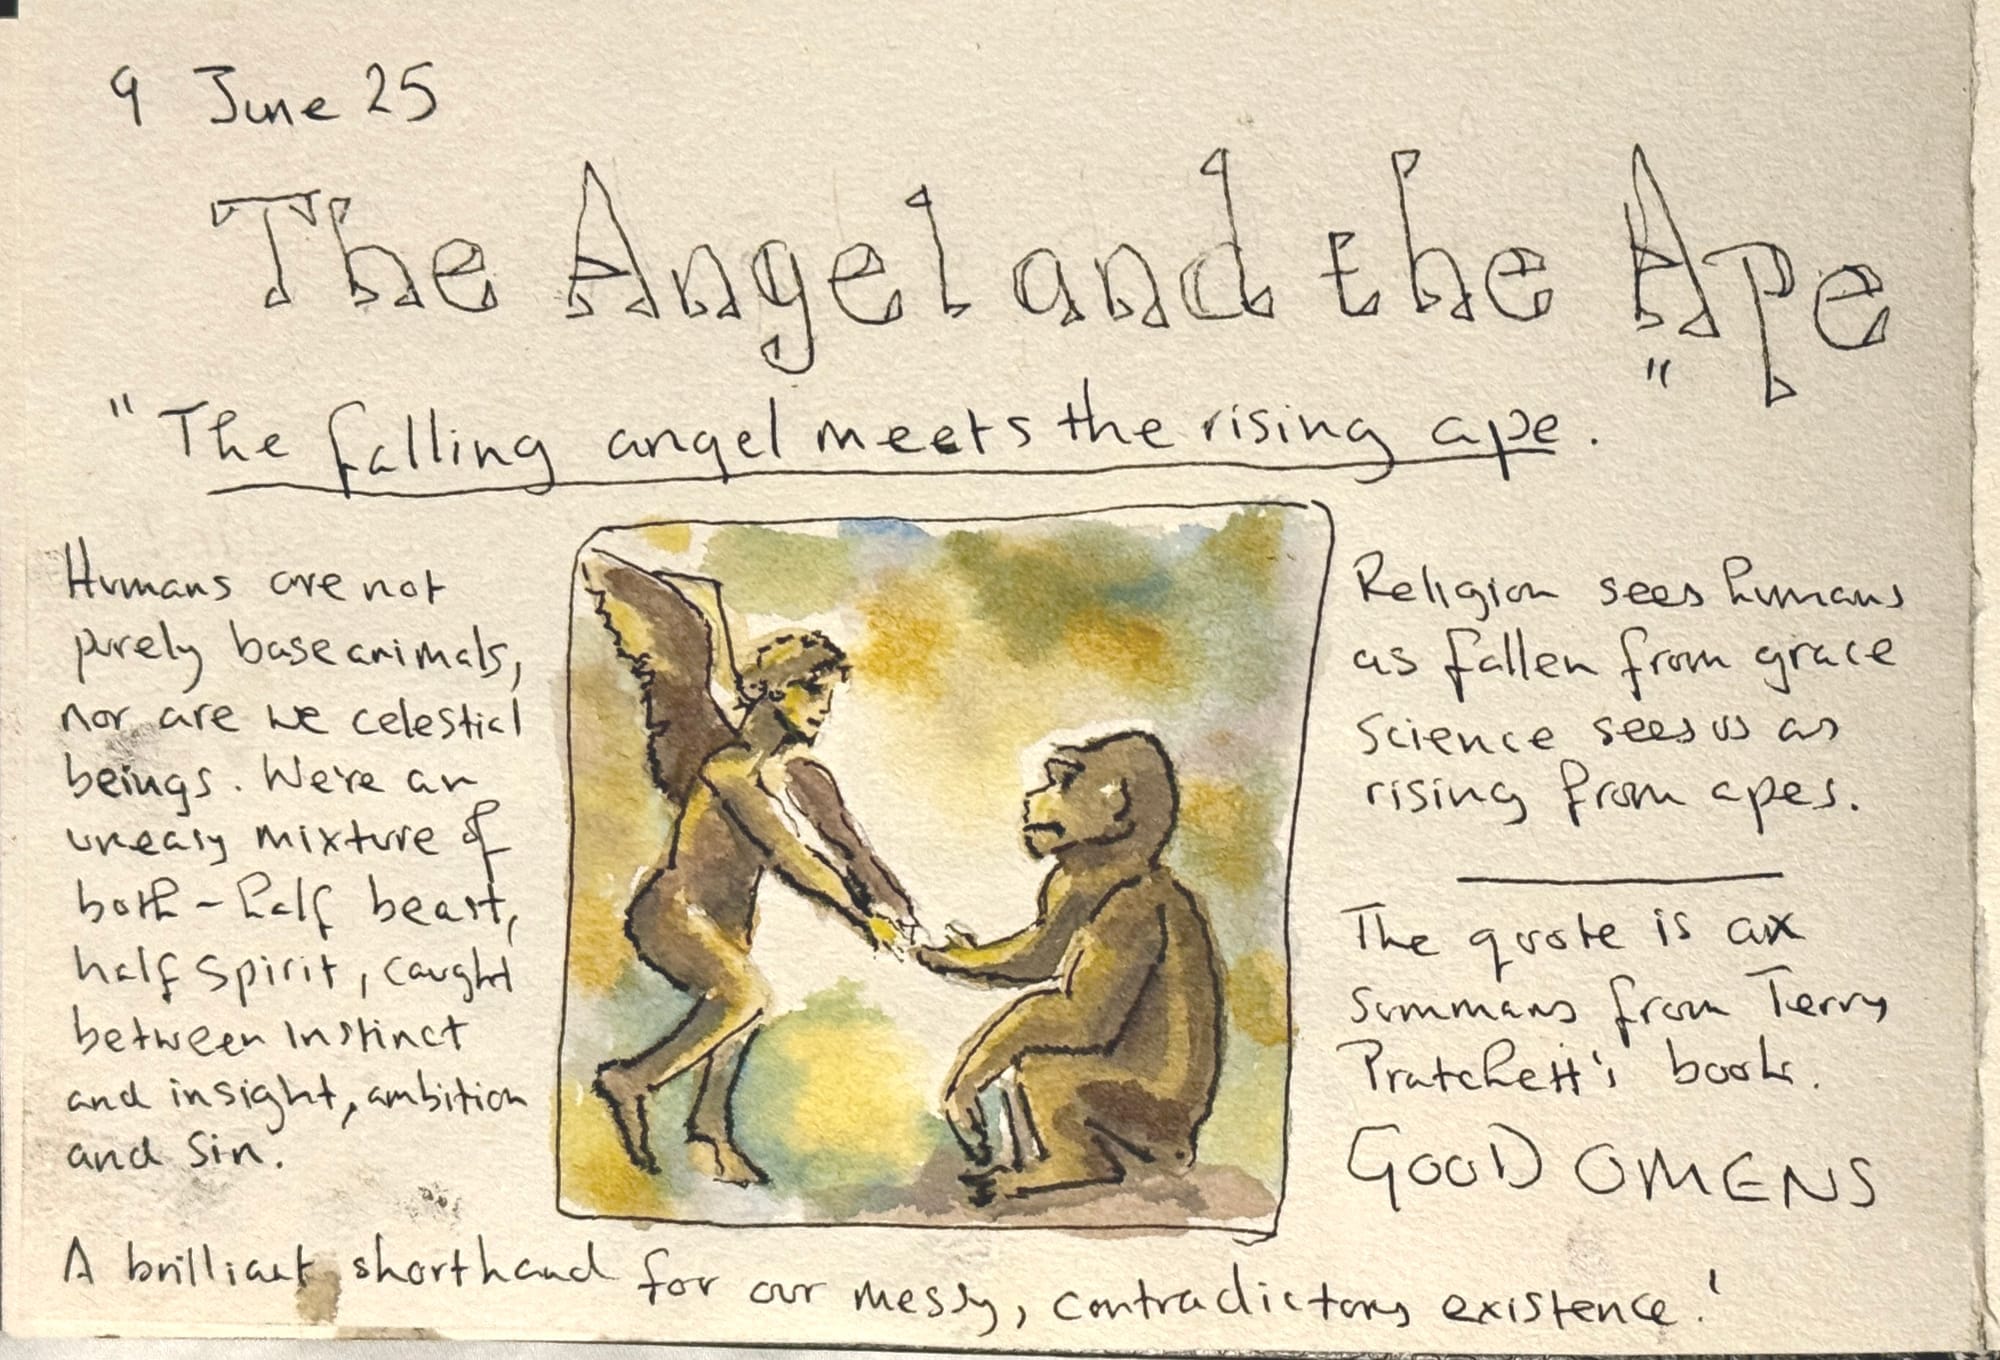 9 June 25
The Angel and the Ape
"The falling angel meets the rising ape."
Humans are not
purely base animals,
nor are we celestial
beings. We're an
uneasy mixture of
both - half beast,
half spirit, caught
between instinct
and insight, ambition
and sin.
Religion sees humans
as fallen from grace
science sees us as
rising from apes.
The quote is a
summary from Terry
Pratchett's book.
GOOD OMENS
A brilliant shorthand for our messy, contradictory existence!